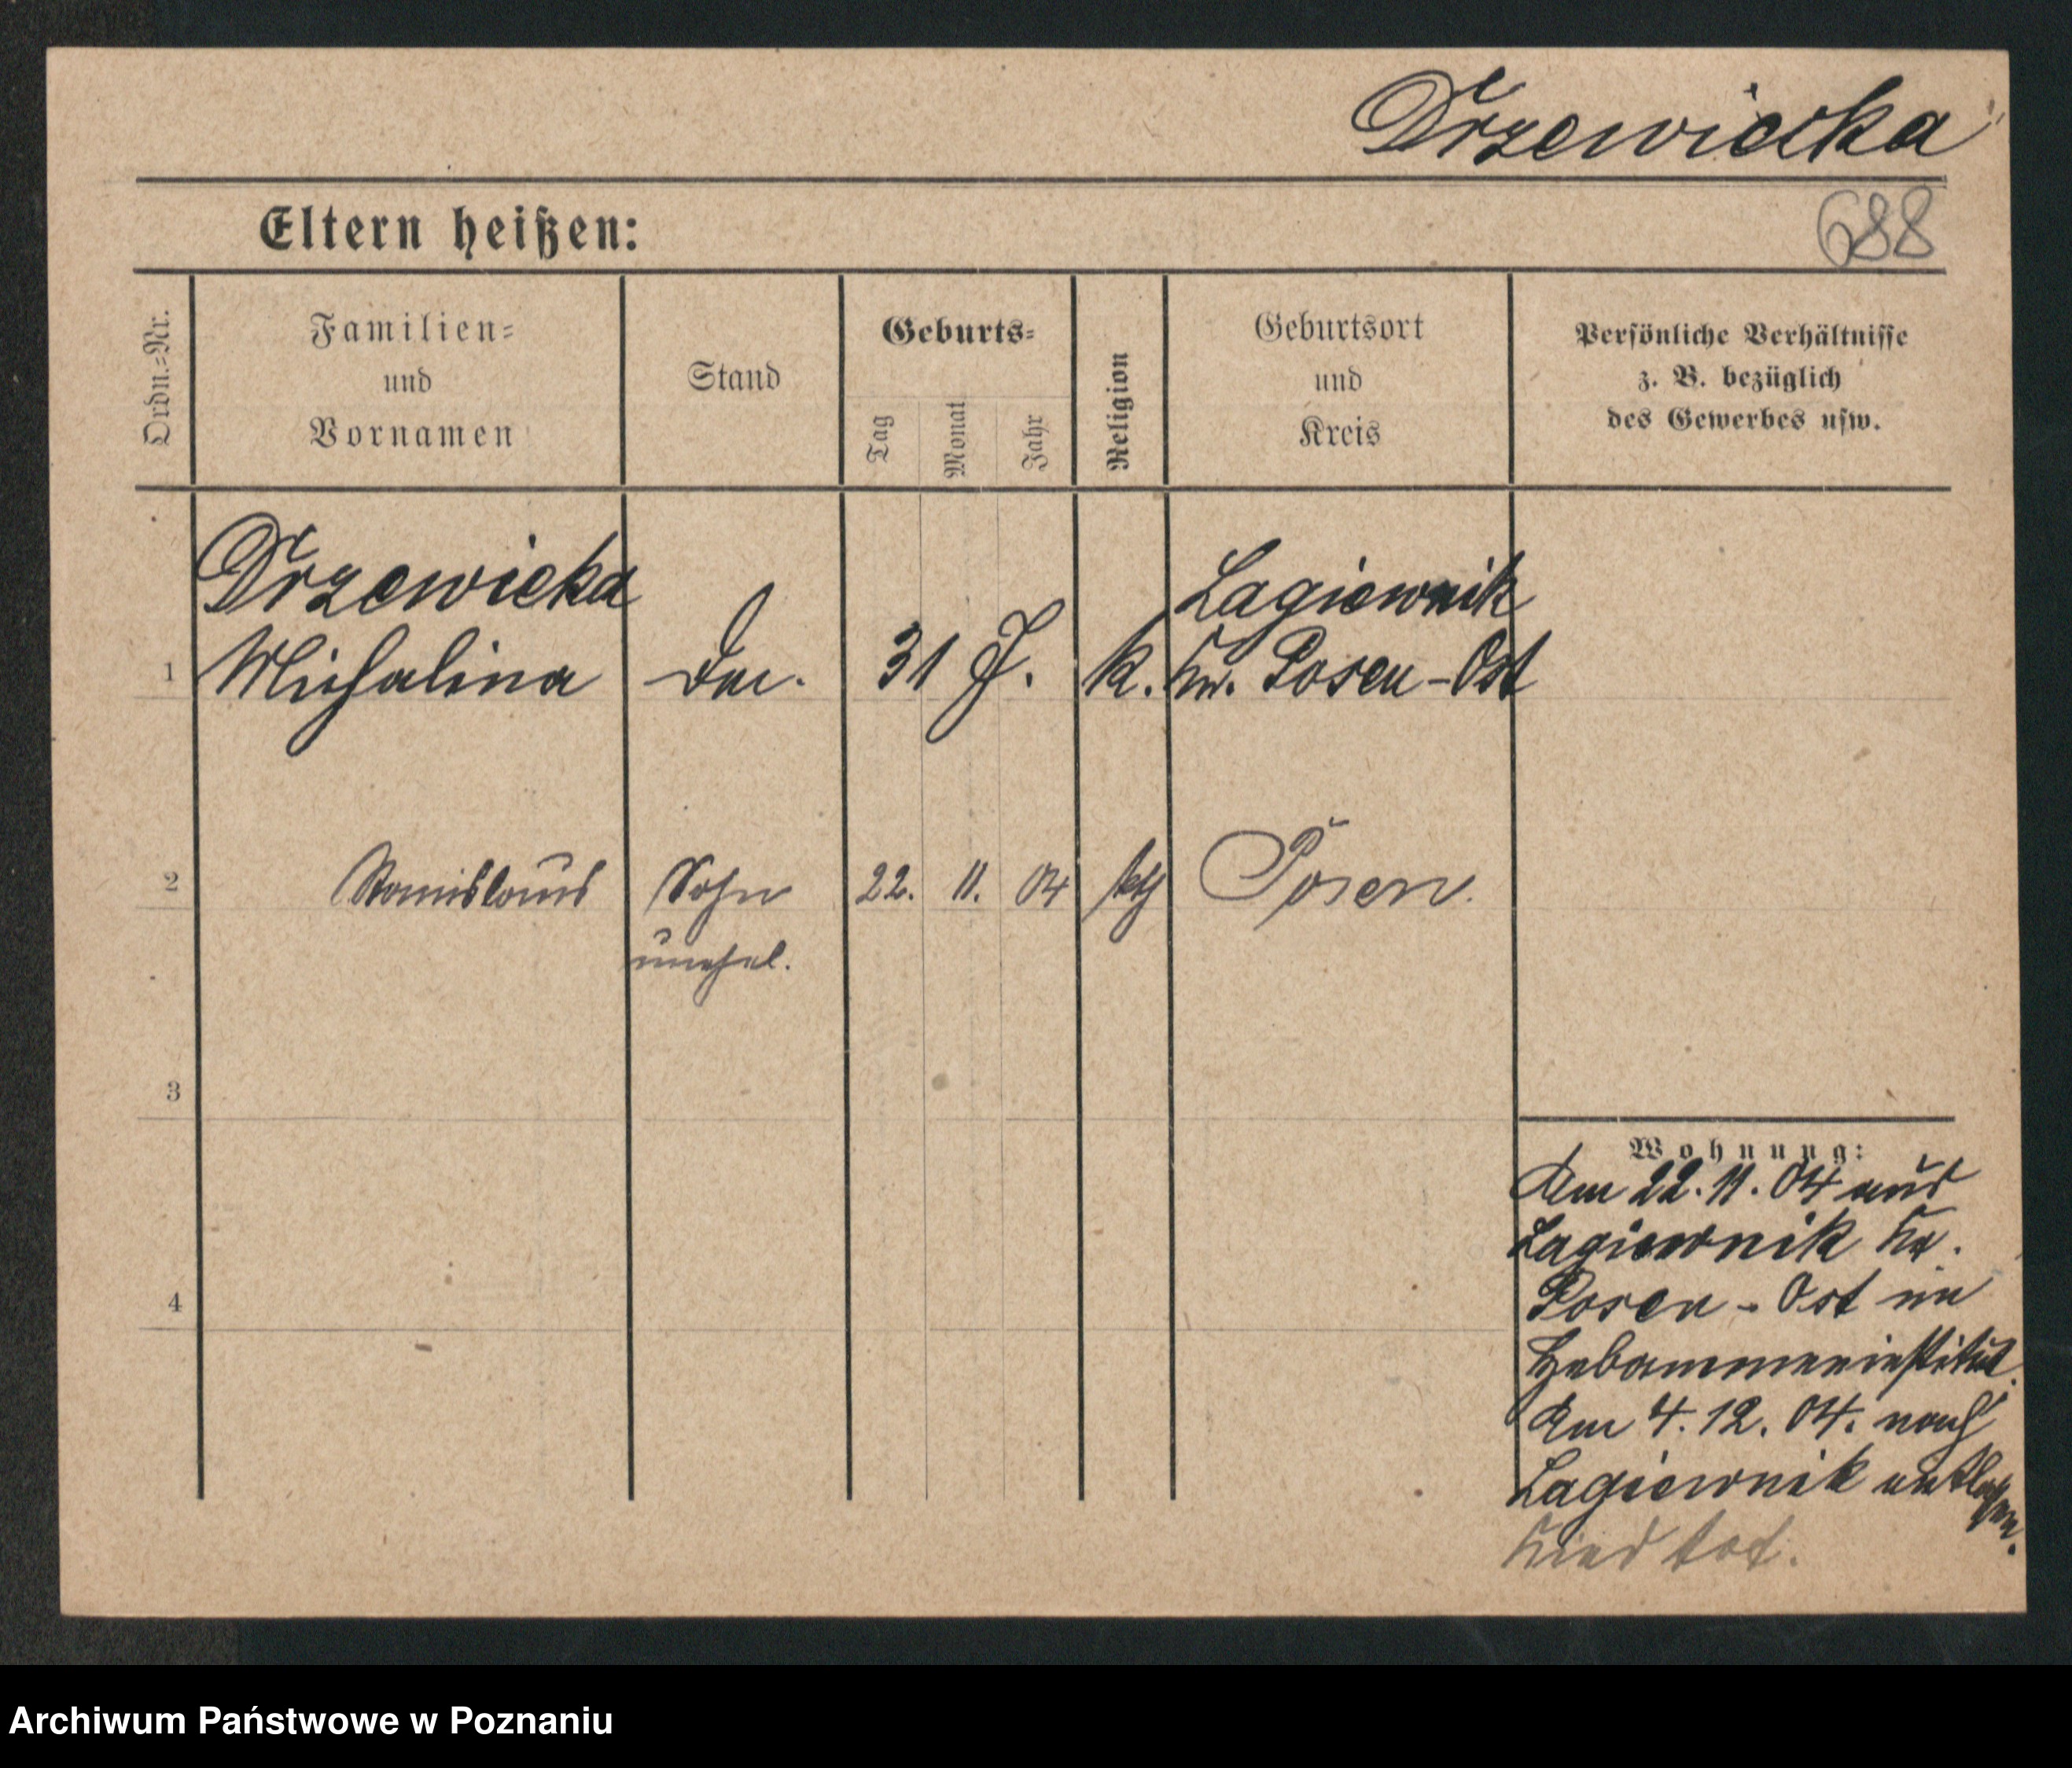 Drzewicka
Eltern heißen:
688
Ordn.=Nr.
Familien=
und
Vornamen
Stand
Geburts=
Tag
Monat
Jahr
Religion
Geburtsort
und
Kreis
Persönliche Verhältnisse
z. B. bezüglich
des Gewerbes usw.
Drzewicka
Lagiewnik
1 Michalina 31 J. k. Kr. Posen-Ost
2 Stanislaus Sohn 22. 11. 04 kth Posen.
unehel.
3
4
Wohnung:
Am 22.11.04 aus
Lagiewnik Kr.
Posen-Ost im
Hebammeninstitut.
Am 4.12.04. nach
Lagiewnik entlassen.
Kind tot.
Archiwum Państwowe w Poznaniu